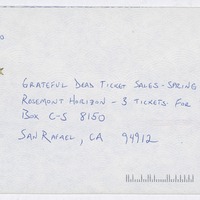 GRATEFUL DEAD TICKET SALES-SPRING
ROSEMONT HORIZON - 3 TICKETS FOR
BOX C-S 8150
SAN RAFAEL, CA 94912